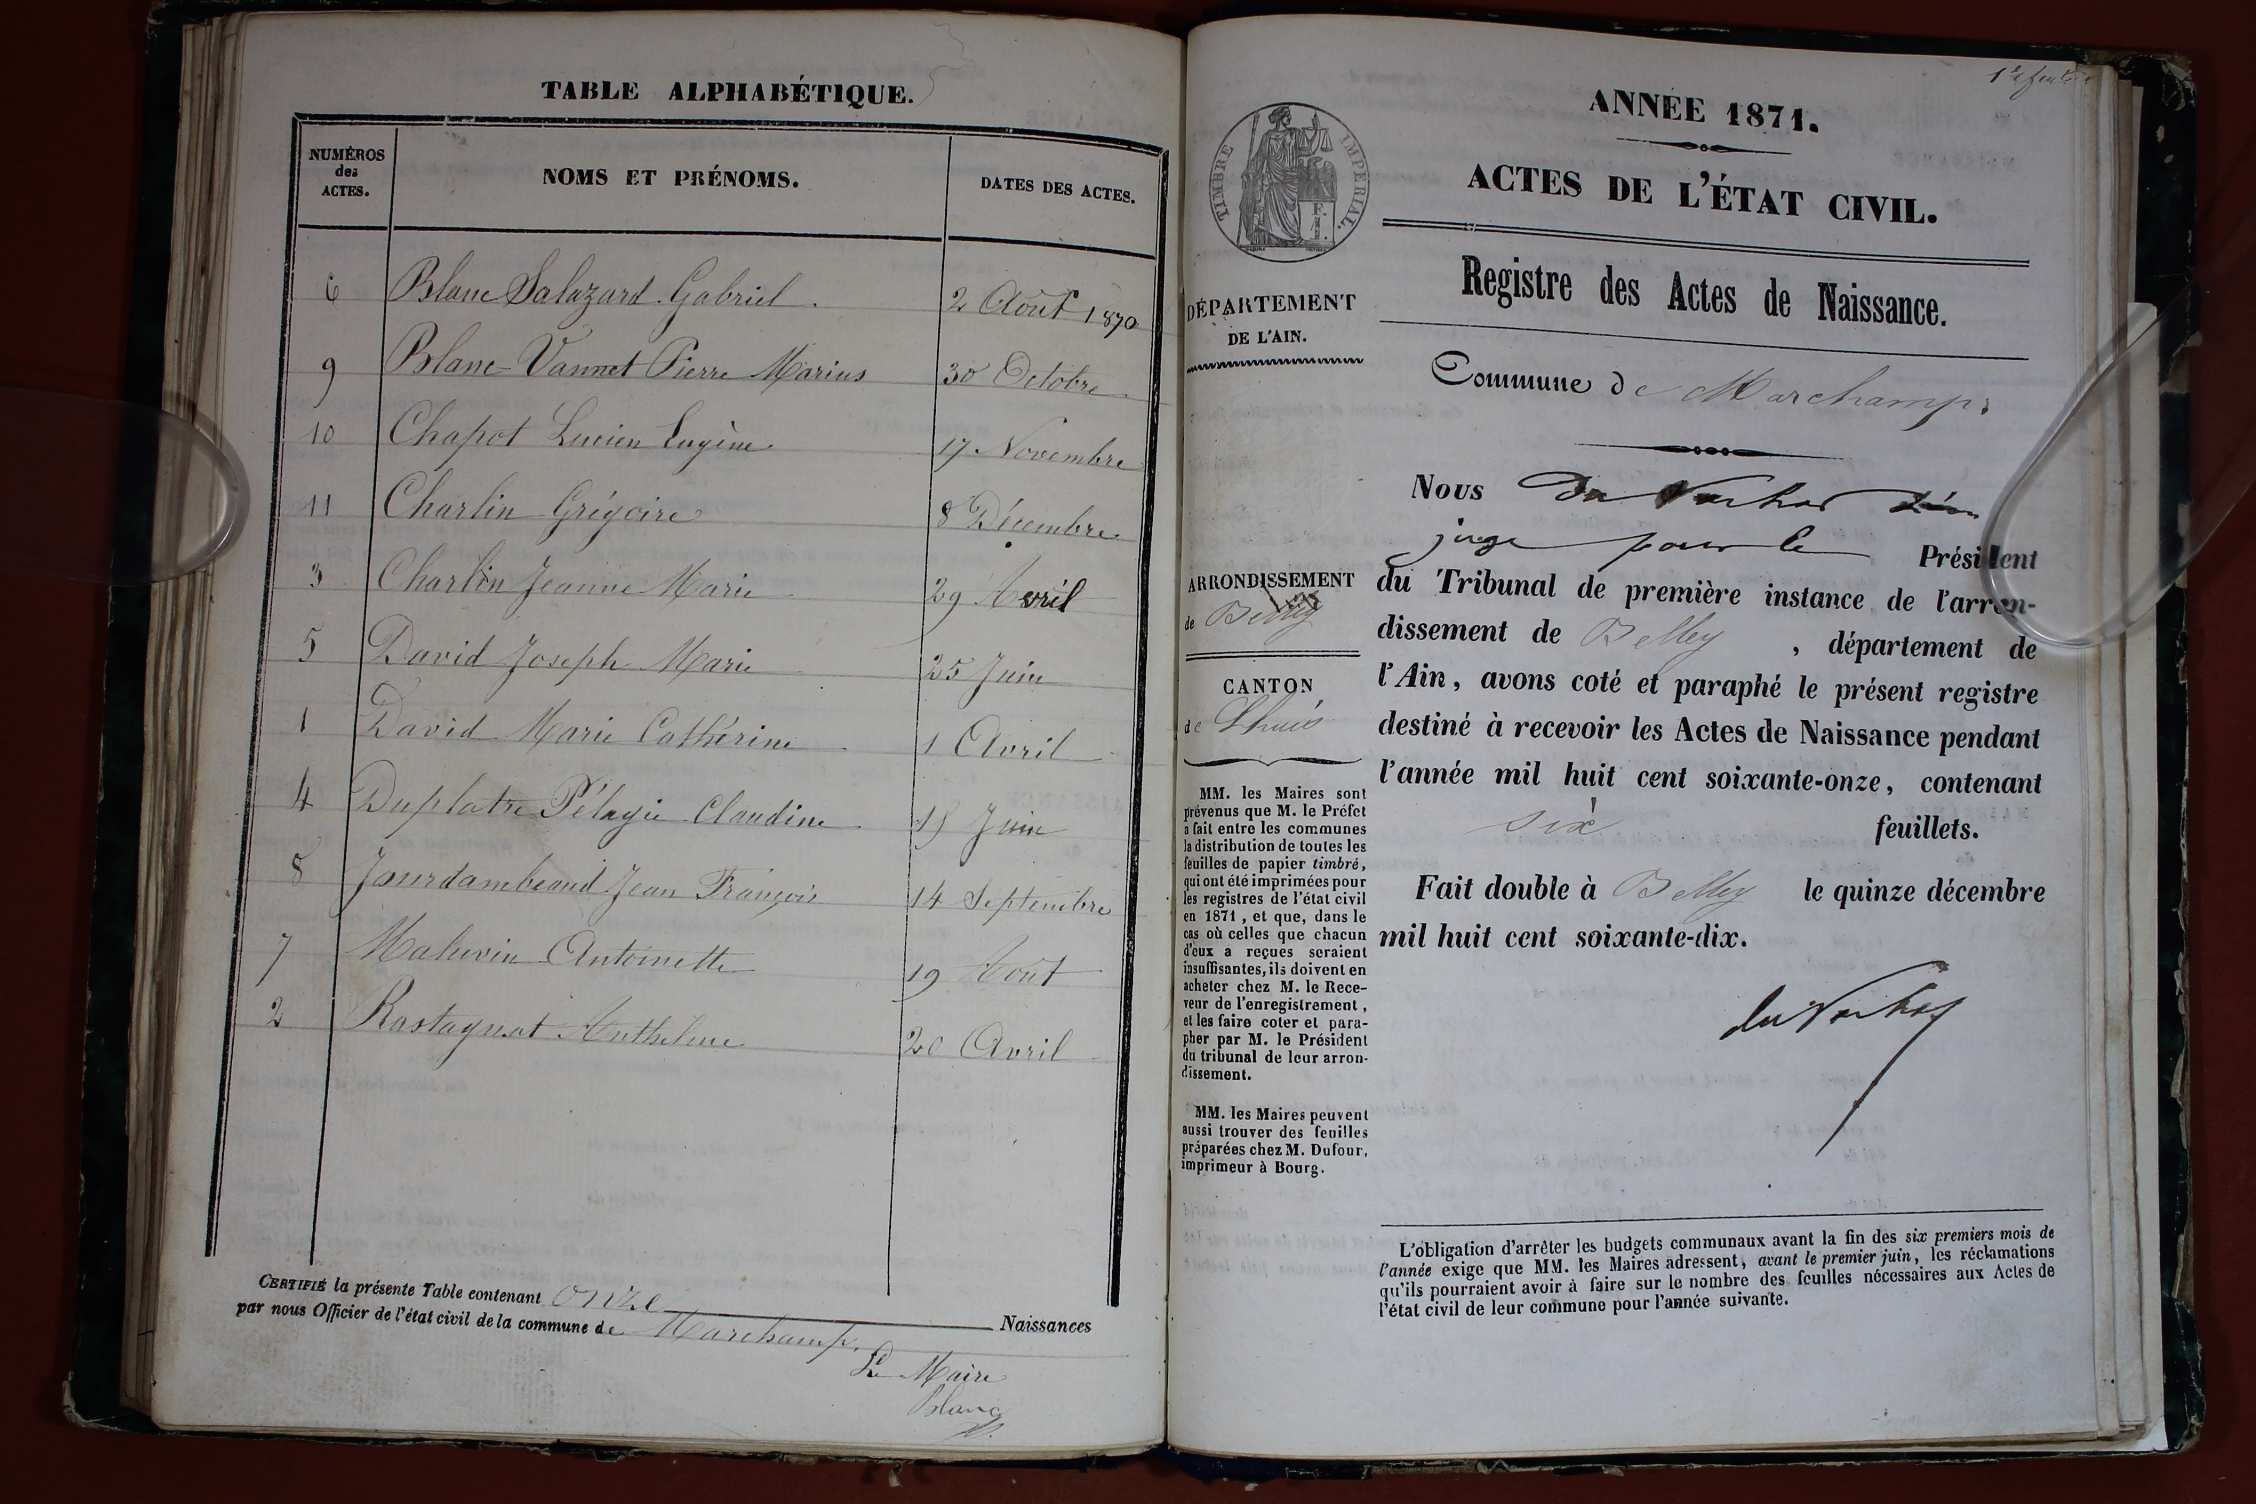 TABLE ALPHABÉTIQUE.
NUMÉROS
des
ACTES.
NOMS ET PRÉNOMS.
DATES DES ACTES.
6 Blanc Salazard Gabriel 2 Août 1870
9 Blanc-Vannet Pierre Marius 30 Octobre
10 Chapot Lucien Eugène 17 Novembre
11 Charlin Grégoire 8 Décembre
3 Charlin Jeanne Marie 29 Avril
5 David Joseph Marie 25 Juin
1 David Marie Cathérine 1 Avril
4 Duplatre Pélagie Claudine Juin
8 Jourdambeaud Jean François 14 Septembre
7 Maluvin Antoinette 19 Août
2 Rostagnat Anthelme 20 Avril
CERTIFIÉ la présente Table contenant onze Naissances
par nous Officier de l'état civil de la commune de Marchamp.
Le Maire
Blanc
TIMBRE IMPÉRIAL.
DÉPARTEMENT
DE L'AIN.
ARRONDISSEMENT
de Belley
CANTON
de Lhuis
MM. les Maires sont
prévenus que M. le Préfet
a fait entre les communes
la distribution de toutes les
feuilles de papier timbré,
qui ont été imprimées pour
les registres de l'état civil
en 1871, et que, dans le
cas où celles que chacun
d'eux a reçues seraient
insuffisantes, ils doivent en
acheter chez M. le Rece-
veur de l'enregistrement,
et les faire coter et para-
pher par M. le Président
du tribunal de leur arron-
dissement.
MM. les Maires peuvent
aussi trouver des feuilles
préparées chez M. Dufour,
imprimeur à Bourg.
ANNÉE 1871.
ACTES DE L'ÉTAT CIVIL.
Registre des Actes de Naissance.
Commune de Marchamp.
Nous
juge pour le Président
du Tribunal de première instance de l'arron-
dissement de Belley, département de
l'Ain, avons coté et paraphé le présent registre
destiné à recevoir les Actes de Naissance pendant
l'année mil huit cent soixante-onze, contenant
six feuillets.
Fait double à Belley le quinze décembre
mil huit cent soixante-dix.
L'obligation d'arrêter les budgets communaux avant la fin des six premiers mois de
l'année exige que MM. les Maires adressent, avant le premier juin, les réclamations
qu'ils pourraient avoir à faire sur le nombre des feuilles nécessaires aux Actes de
l'état civil de leur commune pour l'année suivante.